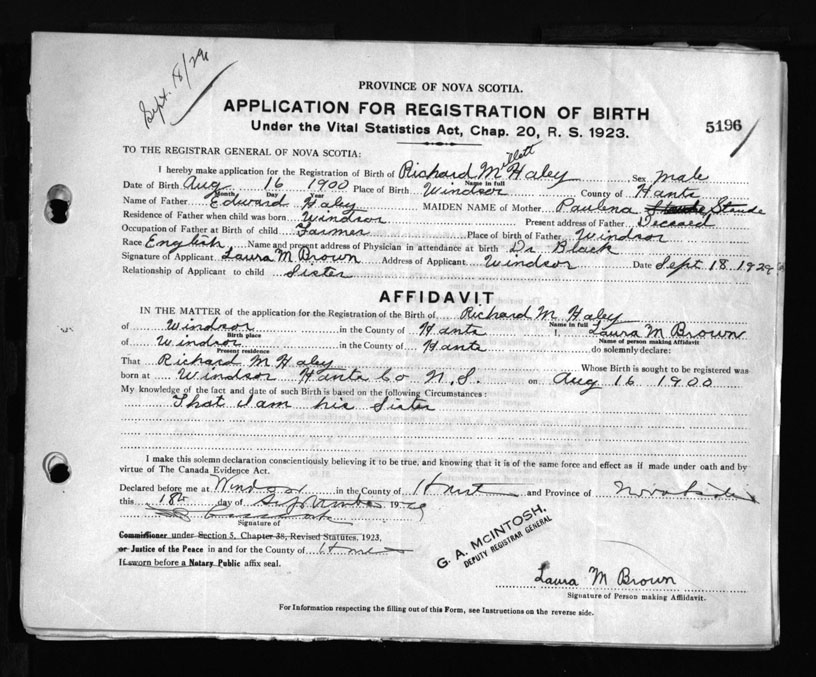 Sept. 18/29
PROVINCE OF NOVA SCOTIA.
APPLICATION FOR REGISTRATION OF BIRTH
Under the Vital Statistics Act, Chap. 20, R. S. 1923.
5196
TO THE REGISTRAR GENERAL OF NOVA SCOTIA:
I hereby make application for the Registration of Birth of Richard M Haley Sex male
Name in full
Date of Birth Aug 16 1900 Place of Birth Windsor County of Hants
Month Day Year
Name of Father Edward Haley MAIDEN NAME of Mother Paulina
Residence of Father when child was born Windsor Present address of Father Deceased
Occupation of Father at Birth of child Farmer Place of birth of Father Windsor
Race English Name and present address of Physician in attendance at birth Dr Black
Signature of Applicant Laura M Brown Address of Applicant Windsor Date Sept 18 1929
Relationship of Applicant to child Sister
AFFIDAVIT
IN THE MATTER of the application for the Registration of the Birth of Richard M Haley
Name in full
of Windsor in the County of Hants I, Laura M Brown
Birth place Name of person making Affidavit
of Windsor in the County of Hants do solemnly declare:
Present residence
That Richard M Haley Whose Birth is sought to be registered was
born at Windsor Hants Co N.S. on Aug 16 1900
My knowledge of the fact and date of such Birth is based on the following Circumstances:
That I am his Sister
I make this solemn declaration conscientiously believing it to be true, and knowing that it is of the same force and effect as if made under oath and by
virtue of The Canada Evidence Act.
Declared before me at Windsor in the County of Hants and Province of Nova Scotia
this 18th day of September 1929
Signature of
Commissioner under Section 5, Chapter 38, Revised Statutes, 1923,
or Justice of the Peace in and for the County of Hants
If sworn before a Notary Public affix seal.
G. A. McINTOSH,
DEPUTY REGISTRAR GENERAL
Laura M Brown
Signature of Person making Affidavit.
For Information respecting the filling out of this Form, see Instructions on the reverse side.